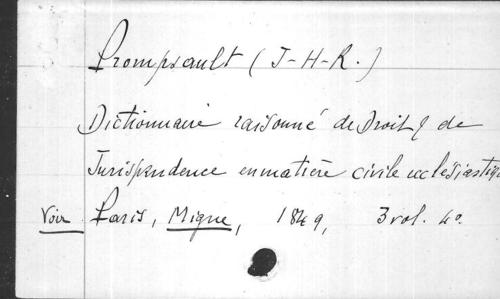 Prompsault (J-H-R.)
Dictionnaire raisonné de Droit & de
Jurisprudence en matière civile ecclésiastique
Voir Paris, Migne, 1849, 3 vol. 4º.